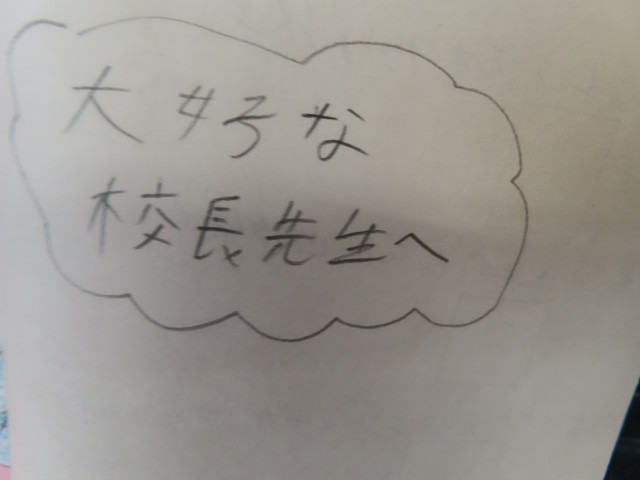 大好な
校長先生へ